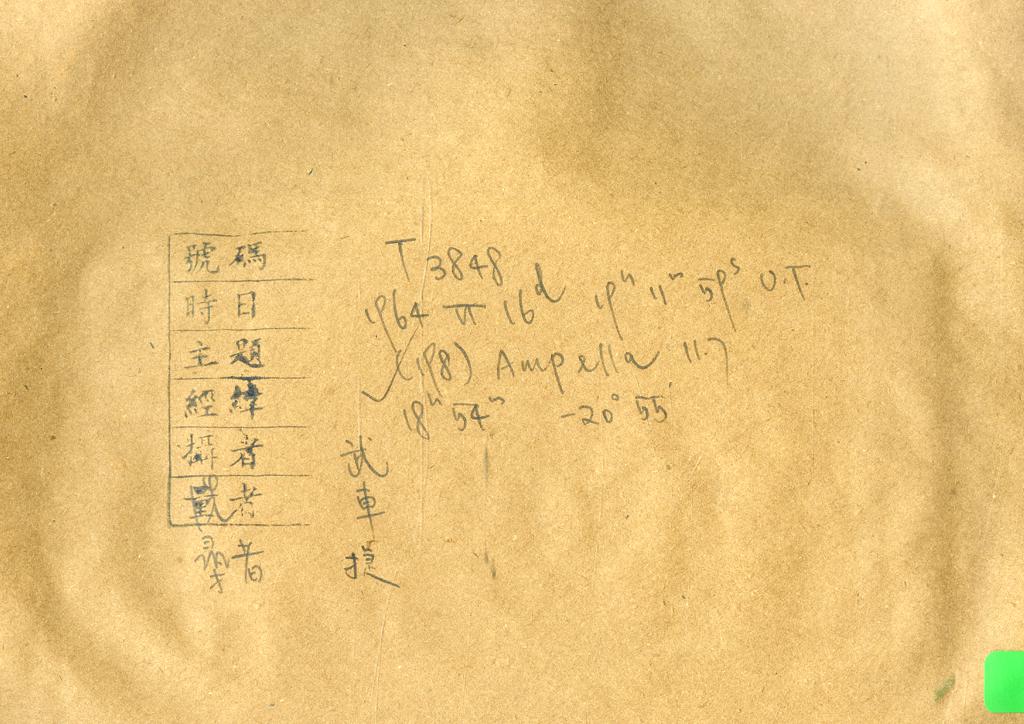 號碼 T 3848
時日 1964 VI 16ᵈ 19ʰ 11ᵐ 59ˢ U.T.
主題 (198) Ampella 11.7
經緯 18ʰ 54ᵐ -20° 55'
攝者 武
者 車
尋者